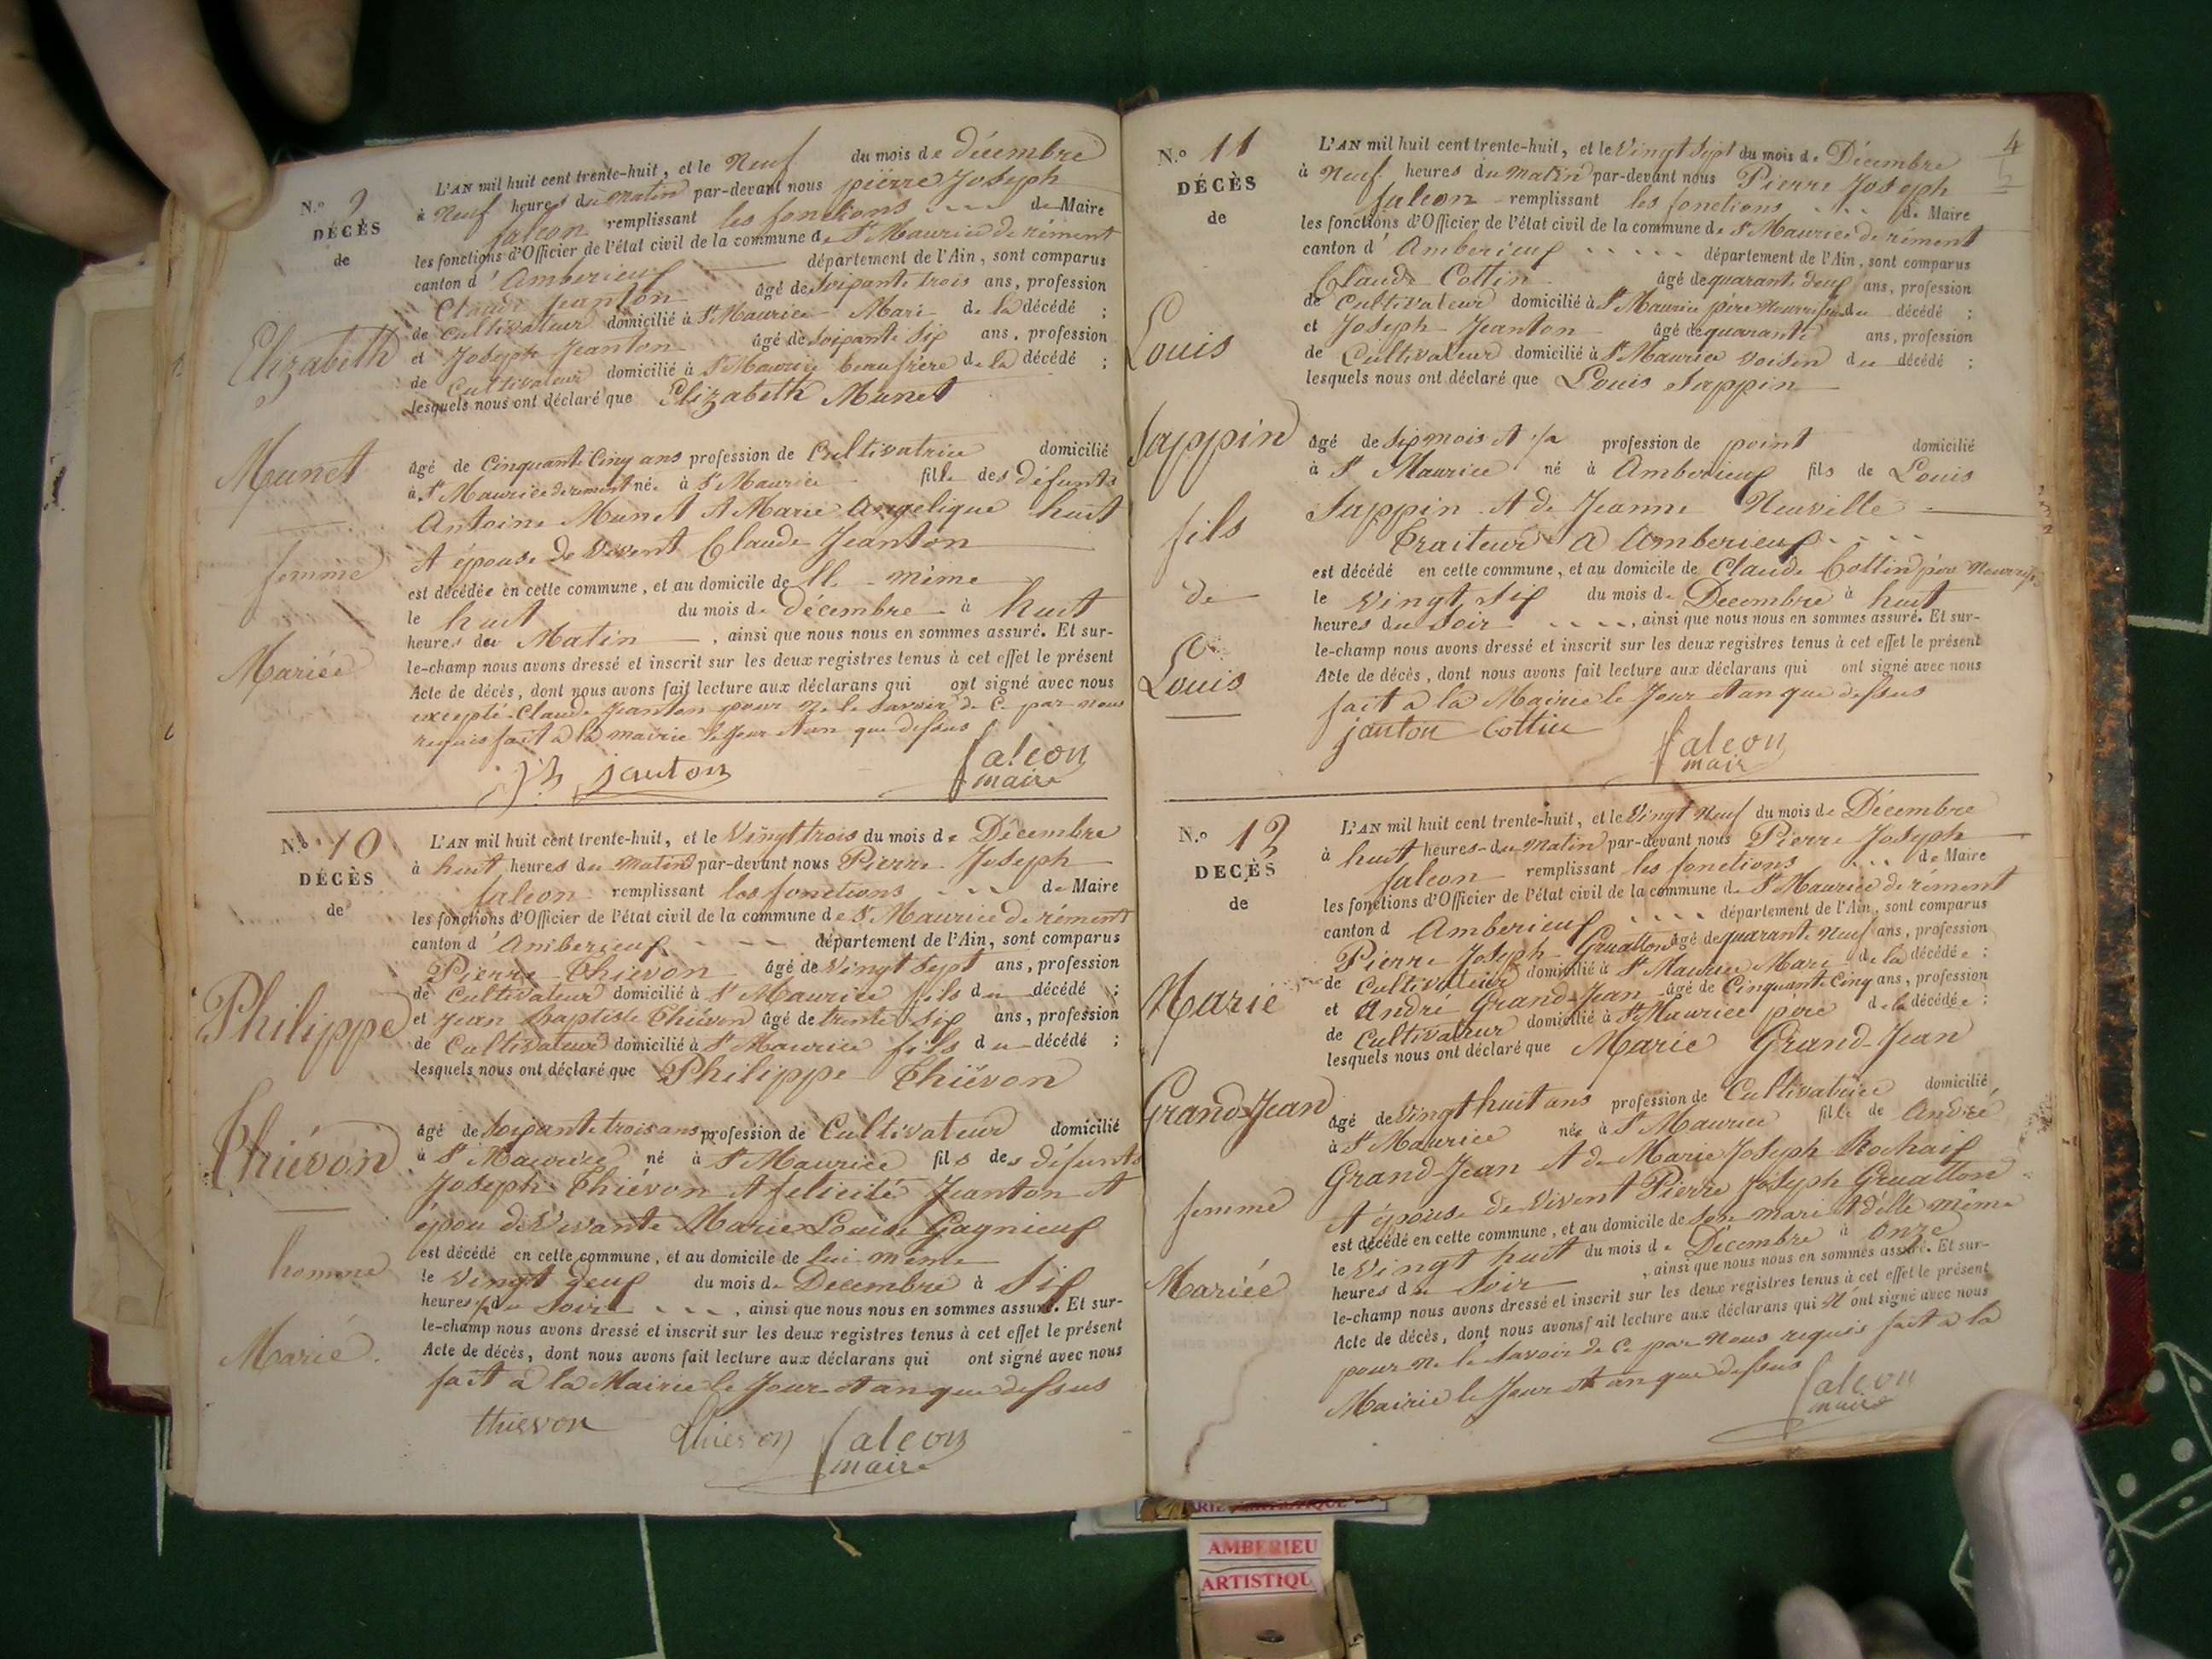 N.º 9
DÉCÈS
de
Elizabeth
Munet
femme
Mariée
L'AN mil huit cent trente-huit, et le Neuf du mois de décembre
à Neuf heures du matin par-devant nous pierre Joseph
falcon remplissant les fonctions de Maire
les fonctions d'Officier de l'état civil de la commune de St Maurice de rément
canton d'Amberieux département de l'Ain, sont comparus
Claude Jeanton âgé de soixante trois ans, profession
de cultivateur domicilié à St Maurice Mari de la décédé ;
et Joseph Jeanton âgé de soixante six ans, profession
de Cultivateur domicilié à St Maurice beaufrère de la décédé ;
lesquels nous ont déclaré que Elizabeth Munet
âgé de Cinquante Cinq ans profession de Cultivatrice domicilié
à St Maurice de rement née à St Maurice fille des défunts
Antoine Munet et Marie Angelique huit
et épouse de vivent Claude Jeanton
est décédée en cette commune, et au domicile de ll même
le huit du mois de décembre à huit
heures du Matin, ainsi que nous nous en sommes assuré. Et sur-
le-champ nous avons dressé et inscrit sur les deux registres tenus à cet effet le présent
Acte de décès, dont nous avons fait lecture aux déclarans qui ont signé avec nous
excepté Claude Jeanton pour ne le savoir de ce par nous
requis fait a la mairie le Jour et an que dessus
janton falcon
maire
N.º 10
DÉCÈS
de
Philippe
Thiévon
homme
Marié.
L'AN mil huit cent trente-huit, et le Vingt trois du mois de Décembre
à huit heures du matin par-devant nous Pierre Joseph
falcon remplissant les fonctions de Maire
les fonctions d'Officier de l'état civil de la commune de St Maurice de rément
canton d'Amberieux département de l'Ain, sont comparus
Pierre Thievon âgé de Vingt Sept ans, profession
de Cultivateur domicilié à St Maurice fils du décédé ;
et Jean Baptiste Thiévon âgé de trente Six ans, profession
de Cultivateur domicilié à St Maurice fils du décédé ;
lesquels nous ont déclaré que Philippe Thiévon
âgé de Soixante trois ans profession de Cultivateur domicilié
à St Maurice né à St Maurice fils des défunts
Joseph Thiévon et felicité Jeanton et
épou de Vivante Marie Louise Gagnieux
est décédé en cette commune, et au domicile de lui même
le Vingt deux du mois de Decembre à Six
heures du Soir, ainsi que nous nous en sommes assuré. Et sur-
le-champ nous avons dressé et inscrit sur les deux registres tenus à cet effet le présent
Acte de décès, dont nous avons fait lecture aux déclarans qui ont signé avec nous
fait a la Mairie le Jour et an que dessus
thievon Thievon falcon
maire
4
N.º 11
DÉCÈS
de
Louis
Sappin
fils
de
Louis
L'AN mil huit cent trente-huit, et le Vingt Sept du mois de Décembre
à Neuf heures du Matin par-devant nous Pierre Joseph
falcon remplissant les fonctions de Maire
les fonctions d'Officier de l'état civil de la commune de St Maurice de rément
canton d'Amberieux département de l'Ain, sont comparus
Claude Cottin âgé de quarante deux ans, profession
de Cultivateur domicilié à St Maurice père Nourrissier du décédé ;
et Joseph Jeanton âgé de quarante ans, profession
de Cultivateur domicilié à St Maurice voisin du décédé ;
lesquels nous ont déclaré que Louis Sappin
âgé de Six mois et 1/2 profession de point domicilié
à St Maurice né à Amberieux fils de Louis
Sappin et de Jeanne Neuville
Traiteur a Amberieux
est décédé en cette commune, et au domicile de Claude Cottin père
le Vingt Six du mois de Decembre à huit
heures du Soir, ainsi que nous nous en sommes assuré. Et sur-
le-champ nous avons dressé et inscrit sur les deux registres tenus à cet effet le présent
Acte de décès, dont nous avons fait lecture aux déclarans qui ont signé avec nous
fait a la Mairie le Jour et an que dessus
janton Cottin falcon
maire
N.º 12
DECÈS
de
Marie
Grand-Jean
femme
Mariée
L'AN mil huit cent trente-huit, et le Vingt Neuf du mois de Décembre
à huit heures du Matin par-devant nous Pierre Joseph
falcon remplissant les fonctions de Maire
les fonctions d'Officier de l'état civil de la commune de St Maurice de rément
canton d Amberieux département de l'Ain, sont comparus
Pierre Joseph Gruatton âgé de quarante Neuf ans, profession
de Cultivateur domicilié à St Maurice Mari de la décédée ;
et André Grand-Jean âgé de Cinquante Cinq ans, profession
de Cultivateur domicilié à St Maurice père de la décédée ;
lesquels nous ont déclaré que Marie Grand-Jean
âgé de Vingt huit ans profession de Cultivatrice domicilié
à St Maurice née à St Maurice fille de André
Grand-Jean et de Marie Joseph Rochaix
et épouse de Vivent Pierre Joseph Gruatton
est décédé en cette commune, et au domicile de Son mari et d'elle même
le Vingt huit du mois de Décembre à Onze
heures du Soir, ainsi que nous nous en sommes assuré. Et sur-
le-champ nous avons dressé et inscrit sur les deux registres tenus à cet effet le présent
Acte de décès, dont nous avons fait lecture aux déclarans qui N'ont signé avec nous
pour ne le Savoir de ce par Nous requis fait a la
Mairie le Jour et an que dessus
falcon
maire
AMBERIEU
ARTISTIQU